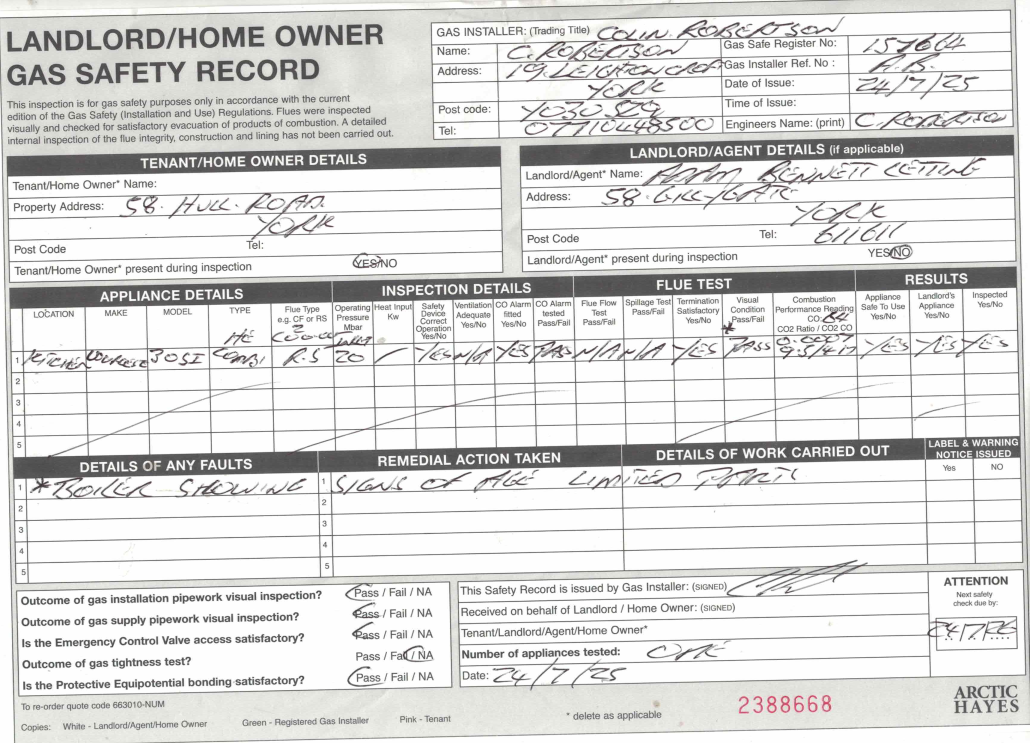 LANDLORD/HOME OWNER
GAS SAFETY RECORD
This inspection is for gas safety purposes only in accordance with the current
edition of the Gas Safety (Installation and Use) Regulations. Flues were inspected
visually and checked for satisfactory evacuation of products of combustion. A detailed
internal inspection of the flue integrity, construction and lining has not been carried out.
GAS INSTALLER: (Trading Title) COLIN. ROBERTSON
Name: C. ROBERTSON Gas Safe Register No: 157664
Address: 19. LEIGHTON CROFT Gas Installer Ref. No : A.B.
YORK Date of Issue: 24/7/25
Post code: Time of Issue:
Tel: 07710448500 Engineers Name: (print) C. ROBERTSON
TENANT/HOME OWNER DETAILS
Tenant/Home Owner* Name:
Property Address: 58. HULL. ROAD.
YORK
Post Code Tel:
Tenant/Home Owner* present during inspection YES/NO
LANDLORD/AGENT DETAILS (if applicable)
Landlord/Agent* Name: ADAM BENNETT LETTING
Address: 58. GILLYGATE
YORK
Post Code Tel: 611611
Landlord/Agent* present during inspection YES/NO
APPLIANCE DETAILS INSPECTION DETAILS FLUE TEST RESULTS
LOCATION MAKE MODEL TYPE Flue Type e.g. CF or RS Operating Pressure Mbar Heat Input Kw Safety Device Correct Operation Yes/No Ventilation Adequate Yes/No CO Alarm fitted Yes/No CO Alarm tested Pass/Fail Flue Flow Test Pass/Fail Spillage Test Pass/Fail Termination Satisfactory Yes/No Visual Condition Pass/Fail Combustion Performance Reading CO: CO2 Ratio / CO2 CO Appliance Safe To Use Yes/No Landlord's Appliance Yes/No Inspected Yes/No
HE *
1 KITCHEN 30SI COMBI R.S 20 / YES N/A YES PASS N/A N/A YES PASS 0.0007 YES YES YES
2
3
4
5
DETAILS OF ANY FAULTS REMEDIAL ACTION TAKEN DETAILS OF WORK CARRIED OUT LABEL & WARNING NOTICE ISSUED
Yes NO
1 *BOILER SHOWING 1 SIGNS OF AGE LIMITED PARTS
2 2
3 3
4 4
5 5
Outcome of gas installation pipework visual inspection? Pass / Fail / NA
Outcome of gas supply pipework visual inspection? Pass / Fail / NA
Is the Emergency Control Valve access satisfactory? Pass / Fail / NA
Outcome of gas tightness test? Pass / Fail / NA
Is the Protective Equipotential bonding satisfactory? Pass / Fail / NA
This Safety Record is issued by Gas Installer: (SIGNED)
Received on behalf of Landlord / Home Owner: (SIGNED)
Tenant/Landlord/Agent/Home Owner*
Number of appliances tested: ONE
Date: 24/7/25
ATTENTION
Next safety
check due by:
24/7/26
To re-order quote code 663010-NUM
Copies: White - Landlord/Agent/Home Owner Green - Registered Gas Installer Pink - Tenant
* delete as applicable
2388668
ARCTIC
HAYES